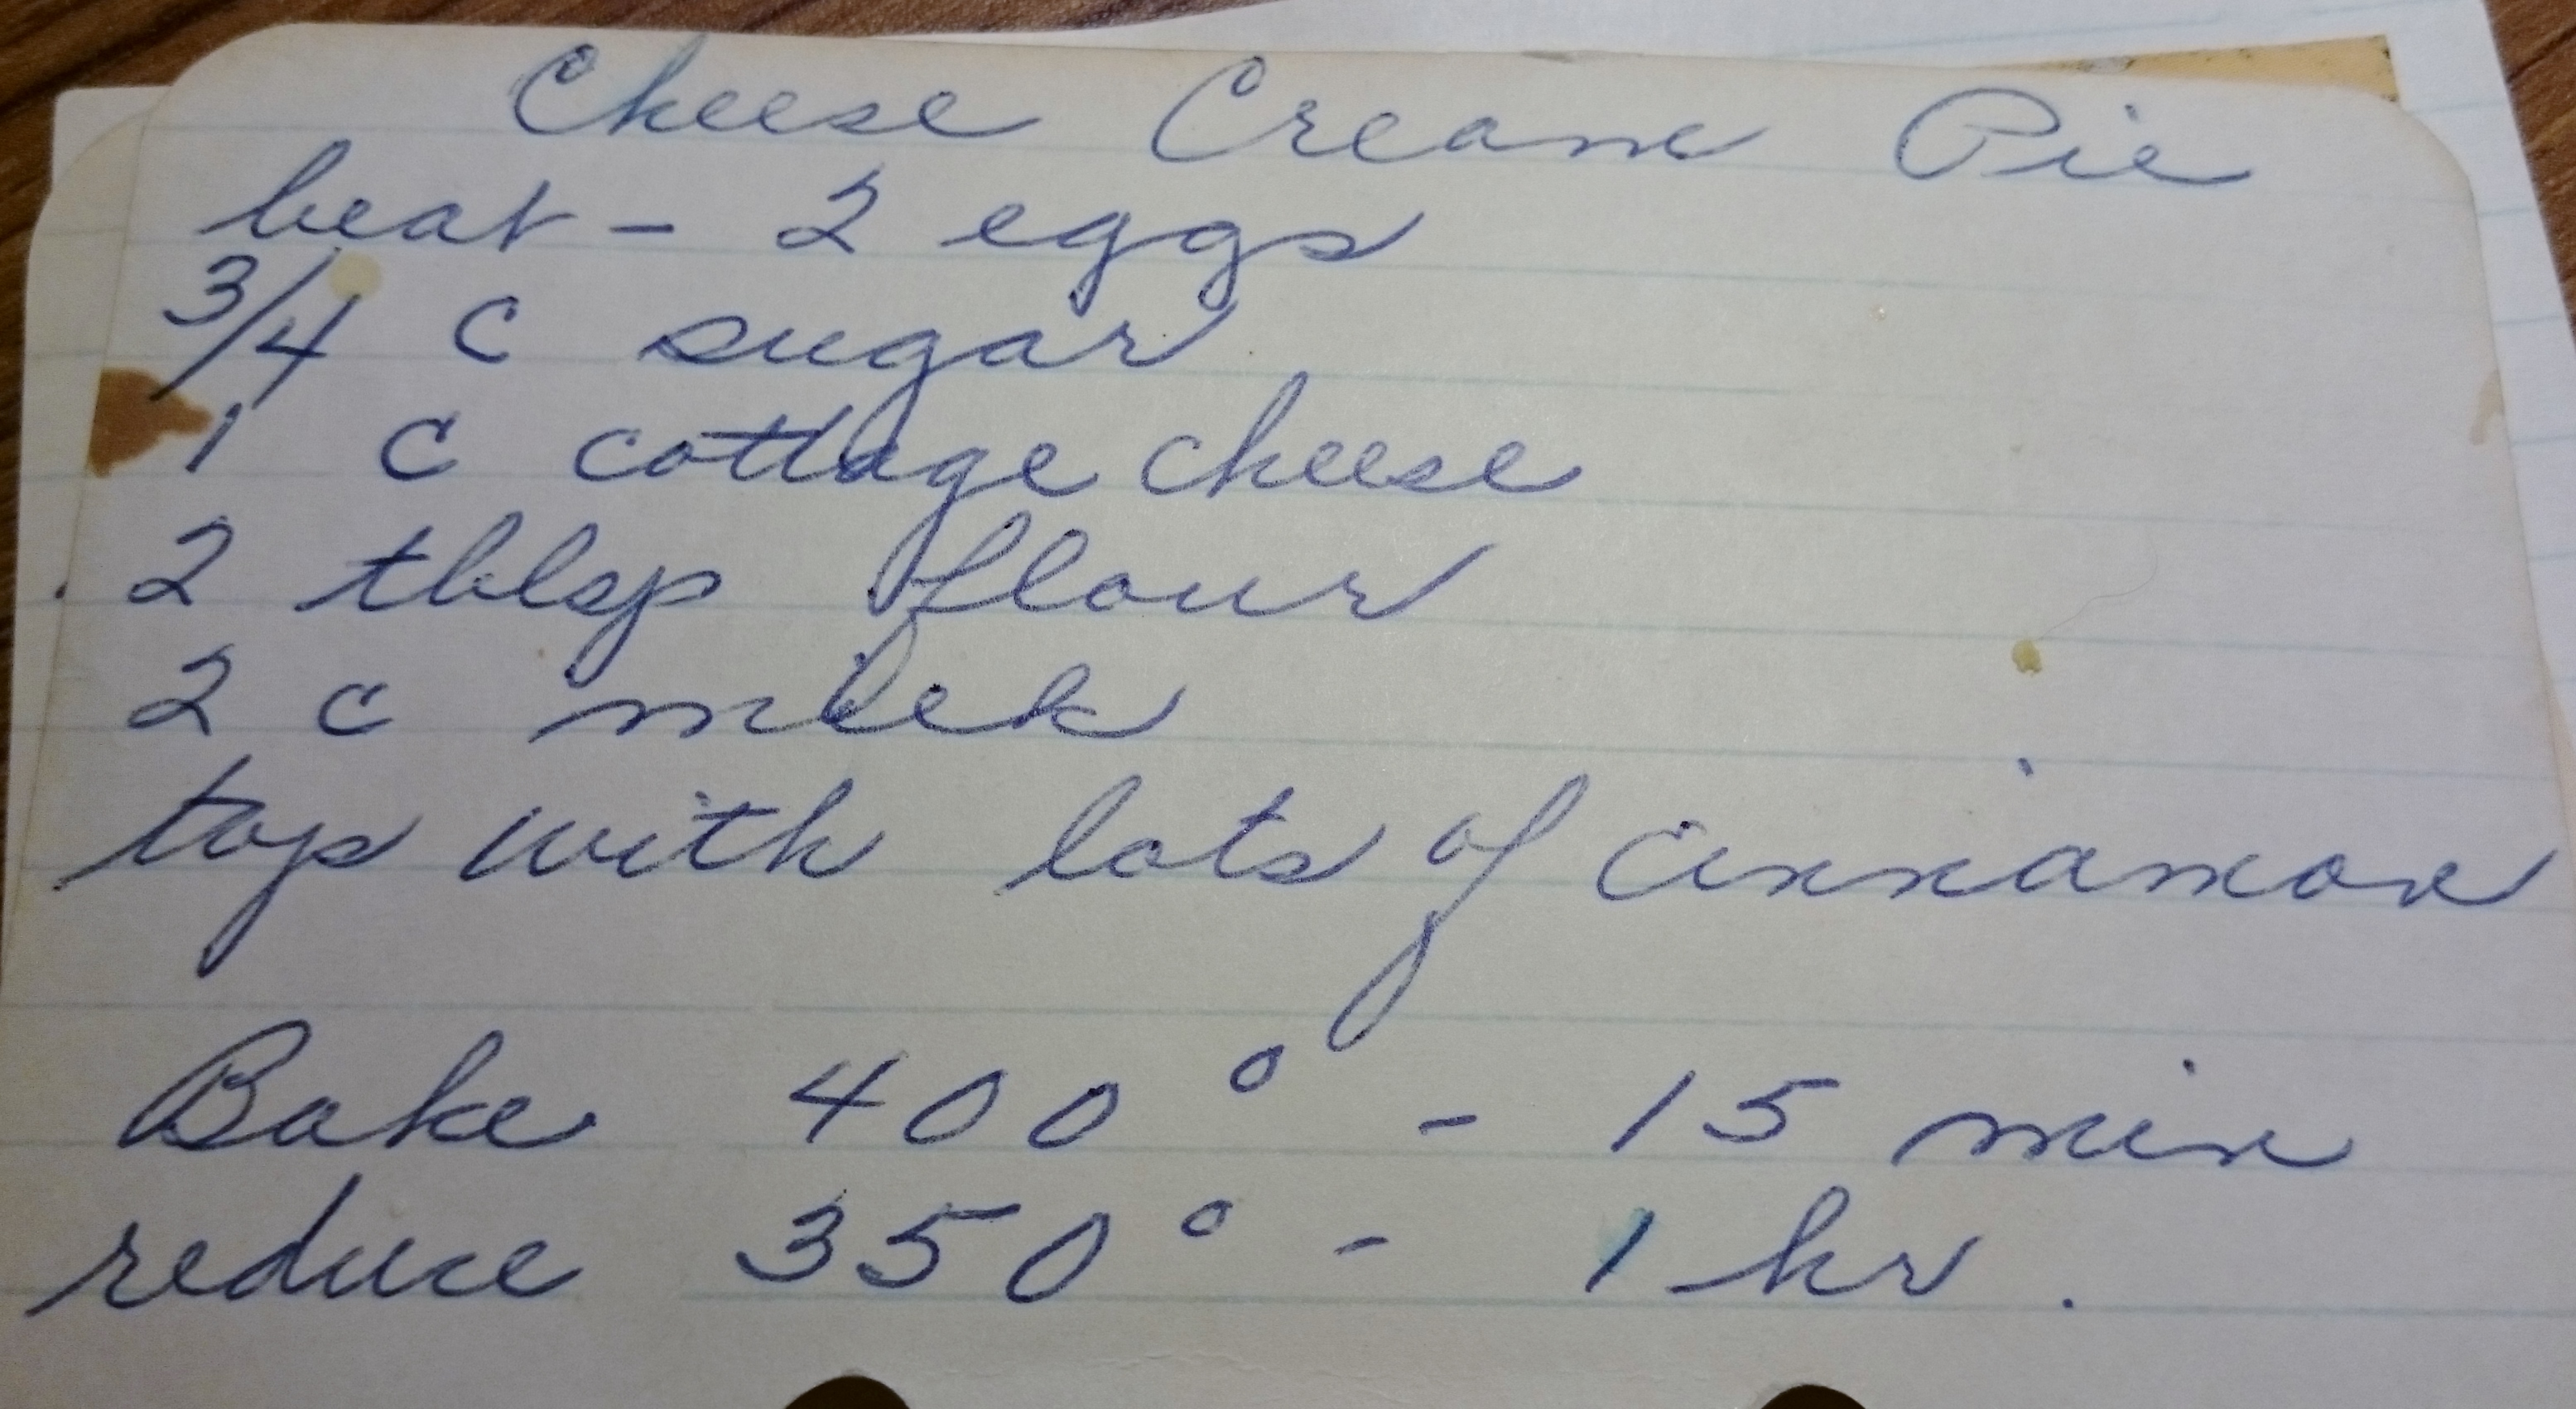 Cheese Cream Pie
beat - 2 eggs
3/4 c sugar
1 c cottage cheese
2 tblsp flour
2 c milk
top with lots of cinnamon
Bake 400° - 15 min
reduce 350° - 1 hr.